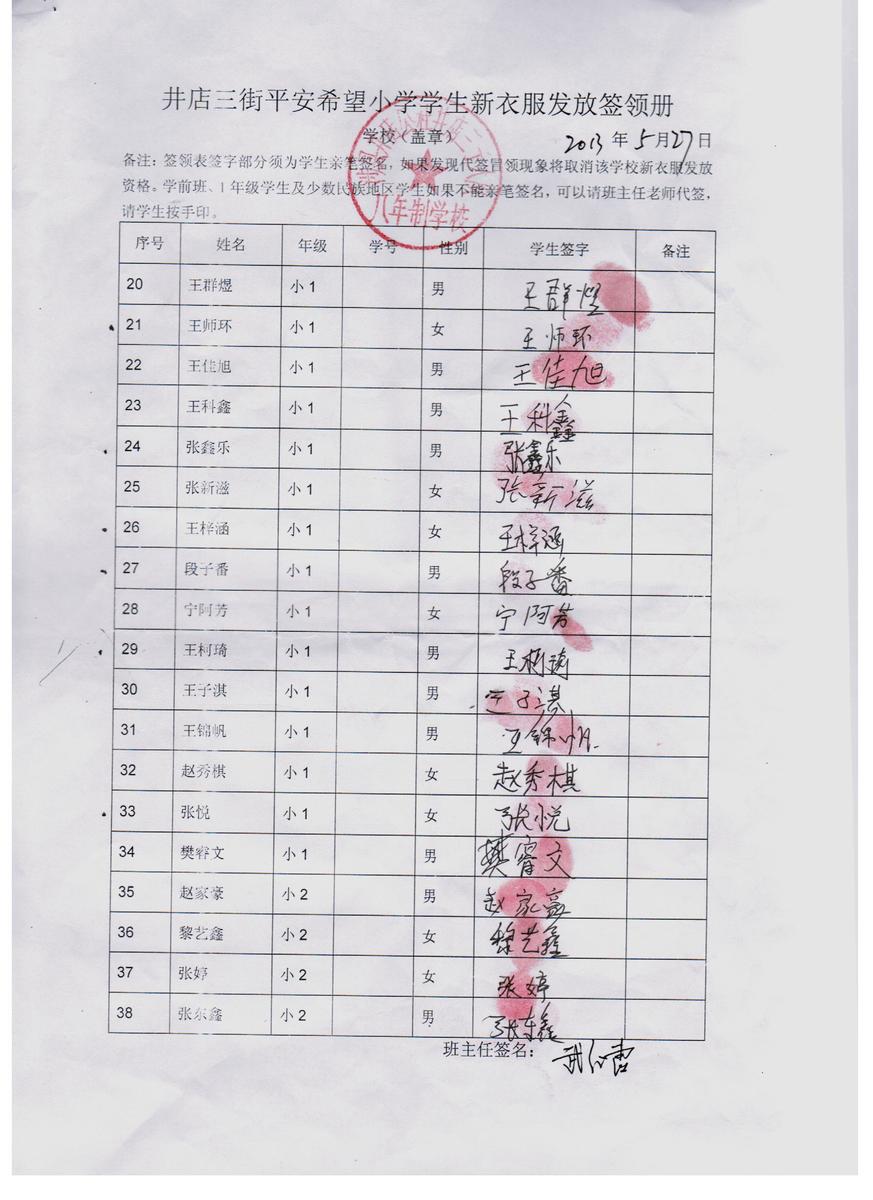 井店三街平安希望小学学生新衣服发放签领册
学校(盖章) 2013 年 5 月 27 日
八年制学校
备注：签领表签字部分须为学生亲笔签名，如果发现代签冒领现象将取消该学校新衣服发放
资格。学前班、1 年级学生及少数民族地区学生如果不能亲笔签名，可以请班主任老师代签，
请学生按手印。
序号 姓名 年级 学号 性别 学生签字 备注
20 王群煜 小 1 男 王群煜
21 王师环 小 1 女 王师环
22 王佳旭 小 1 男 王佳旭
23 王科鑫 小 1 男 王科鑫
24 张鑫乐 小 1 男 张鑫乐
25 张新滋 小 1 女 张新滋
26 王梓涵 小 1 女 王梓涵
27 段子番 小 1 男 段子番
28 宁阿芳 小 1 女 宁阿芳
29 王柯琦 小 1 男 王柯琦
30 王子淇 小 1 男 王子淇
31 王锦帆 小 1 男 王锦帆
32 赵秀棋 小 1 女 赵秀棋
33 张悦 小 1 女 张悦
34 樊睿文 小 1 男 樊睿文
35 赵家豪 小 2 男 赵家豪
36 黎艺鑫 小 2 女 黎艺鑫
37 张婷 小 2 女 张婷
38 张东鑫 小 2 男 张东鑫
班主任签名：